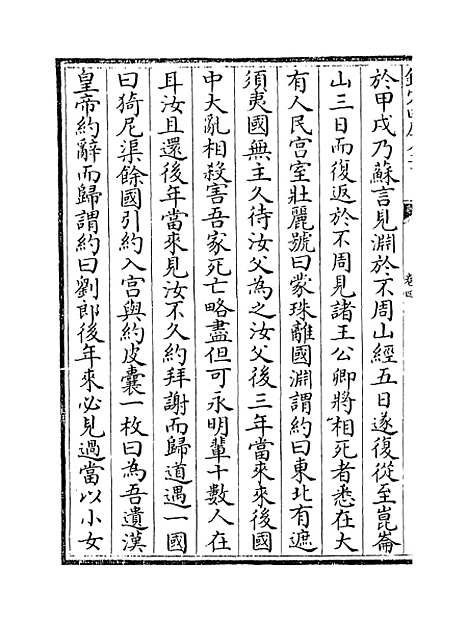 於甲戌乃蘇言見淵於不周山經五日遂復從至崑崙
山三日而復返於不周見諸王公卿將相死者悉在大
有人民宫室壯麗號曰蒙珠離國淵謂約曰東北有遮
須夷國無主久待汝父為之汝父後三年當來來後國
中大亂相殺害吾家死亡略盡但可永明輩十數人在
耳汝且還後年當來見汝不久約拜謝而歸道遇一國
曰猗尼渠餘國引約入宫與約皮囊一枚曰為吾遺漢
皇帝約辭而歸謂約曰劉郎後年來必見過當以小女
卷四